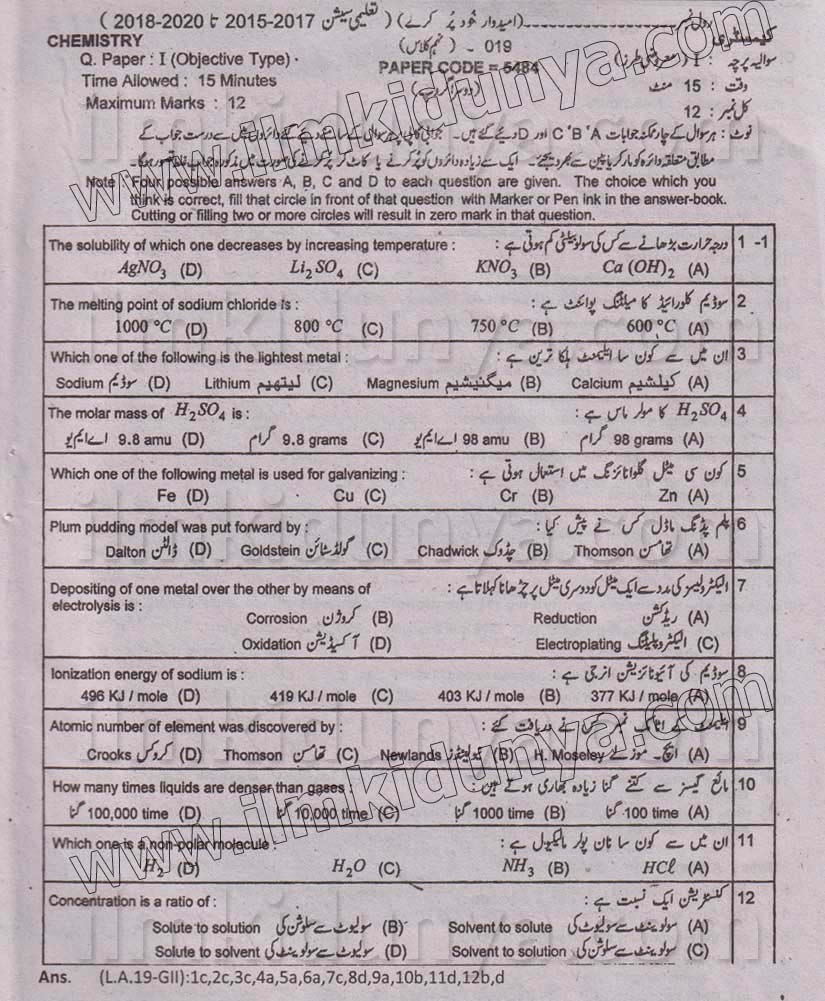 رول نمبر ـــــــــــــ (امیدوار خود پُر کرے) ( تعلیمی سیشن 2017-2015 تا 2020-2018 )
CHEMISTRY 019 - نہم کلاس کیمسٹری
Q. Paper : I (Objective Type) PAPER CODE = 5484 سوالیہ پرچہ : I (معروضی طرز)
Time Allowed : 15 Minutes (دوسرا گروپ) وقت : 15 منٹ
Maximum Marks : 12 کل نمبر : 12
نوٹ : ہر سوال کے چار ممکنہ جوابات A ' B ' C اور D دیئے گئے ہیں۔ جوابی کاپی پر ہر سوال کے سامنے دیئے گئے دائروں میں سے درست جواب کے
مطابق متعلقہ دائرہ کو مارکر یا پین سے بھر دیجئے۔ ایک سے زیادہ دائروں کو پُر کرنے یا کاٹ کر پُر کرنے کی صورت میں مذکورہ جواب غلط تصور ہوگا۔
Note : Four possible answers A, B, C and D to each question are given. The choice which you
think is correct, fill that circle in front of that question with Marker or Pen ink in the answer-book.
Cutting or filling two or more circles will result in zero mark in that question.
The solubility of which one decreases by increasing temperature : درجہ حرارت بڑھانے سے کس کی سولوبیلٹی کم ہوتی ہے : 1 -1
AgNO3 (D) Li2SO4 (C) KNO3 (B) Ca(OH)2 (A)
The melting point of sodium chloride is : سوڈیم کلورائیڈ کا میلٹنگ پوائنٹ ہے : 2
1000 °C (D) 800 °C (C) 750 °C (B) 600 °C (A)
Which one of the following is the lightest metal : ان میں سے کون سا ایلیمنٹ ہلکا ترین ہے : 3
Sodium سوڈیم (D) Lithium لیتھیم (C) Magnesium میگنیشیم (B) Calcium کیلشیم (A)
The molar mass of H2SO4 is : H2SO4 کا مولر ماس ہے : 4
9.8 amu اے ایم یو (D) 9.8 grams گرام (C) 98 amu اے ایم یو (B) 98 grams گرام (A)
Which one of the following metal is used for galvanizing : کون سی میٹل گلوانائزنگ میں استعمال ہوتی ہے : 5
Fe (D) Cu (C) Cr (B) Zn (A)
Plum pudding model was put forward by : پلم پڈنگ ماڈل کس نے پیش کیا : 6
Dalton ڈالٹن (D) Goldstein گولڈسٹائن (C) Chadwick چڈوک (B) Thomson تھامسن (A)
Depositing of one metal over the other by means of الیکٹرولیسز کی مدد سے ایک میٹل کو دوسری میٹل پر چڑھانا کہلاتا ہے : 7
electrolysis is :
Corrosion کروژن (B) Reduction ریڈکشن (A)
Oxidation آکسیڈیشن (D) Electroplating الیکٹروپلیٹنگ (C)
Ionization energy of sodium is : سوڈیم کی آئیونائزیشن انرجی ہے : 8
496 KJ / mole (D) 419 KJ / mole (C) 403 KJ / mole (B) 377 KJ / mole (A)
Atomic number of element was discovered by : ایلیمنٹ کے اٹامک نمبر کس نے دریافت کئے : 9
Crooks کروکس (D) Thomson تھامسن (C) Newlands نیولینڈز (B) H. Moseley ایچ۔ موزلے (A)
How many times liquids are denser than gases : مائع گیسز سے کتنے گنا زیادہ بھاری ہوتے ہیں : 10
100,000 time گنا (D) 10,000 time گنا (C) 1000 time گنا (B) 100 time گنا (A)
Which one is a non-polar molecule : ان میں سے کون سا نان پولر مالیکیول ہے : 11
H2 (D) H2O (C) NH3 (B) HCℓ (A)
Concentration is a ratio of : کنسنٹریشن ایک نسبت ہے : 12
Solute to solution سولیوٹ سے سلوشن کی (B) Solvent to solute سولوینٹ سے سولیوٹ کی (A)
Solute to solvent سولیوٹ سے سولوینٹ کی (D) Solvent to solution سولوینٹ سے سلوشن کی (C)
Ans. (L.A.19-GII):1c,2c,3c,4a,5a,6a,7c,8d,9a,10b,11d,12b,d
www.ilmkidunya.com
www.ilmkidunya.com